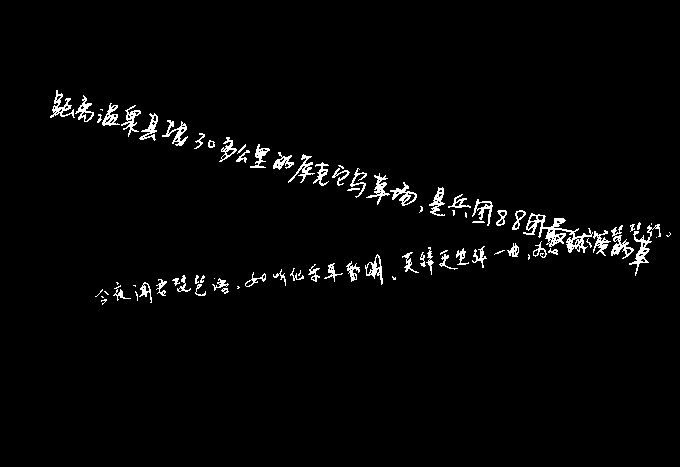 距离温泉县城30多公里的库克它乌草场，是兵团88团最
今夜闻君琵琶语，如听仙乐耳暂明。莫辞更坐弹一曲，为琵琶行。